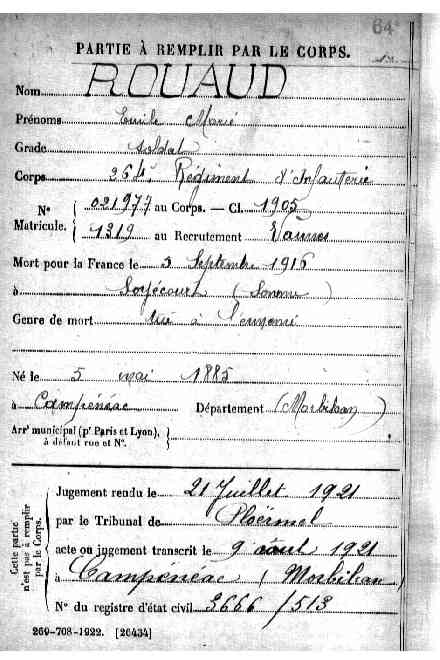 64
PARTIE À REMPLIR PAR LE CORPS.
Nom ROUAUD
Prénoms Emile Marie
Grade soldat
Corps 264e Régiment d'Infanterie
N° Matricule. { 021977 au Corps. — Cl. 1905
1319 au Recrutement Vannes
Mort pour la France le 5 Septembre 1916
à Soyécourt (Somme)
Genre de mort tué à l'ennemi
Né le 5 mai 1885
à Campénéac Département (Morbihan)
Arrt municipal (pr Paris et Lyon), à défaut rue et N°. }
Cette partie n'est pas à remplir par le Corps.
Jugement rendu le 21 Juillet 1921
par le Tribunal de Ploërmel
acte ou jugement transcrit le 9 août 1921
à Campénéac (Morbihan)
N° du registre d'état civil 3666/513
269-708-1922. [26434]